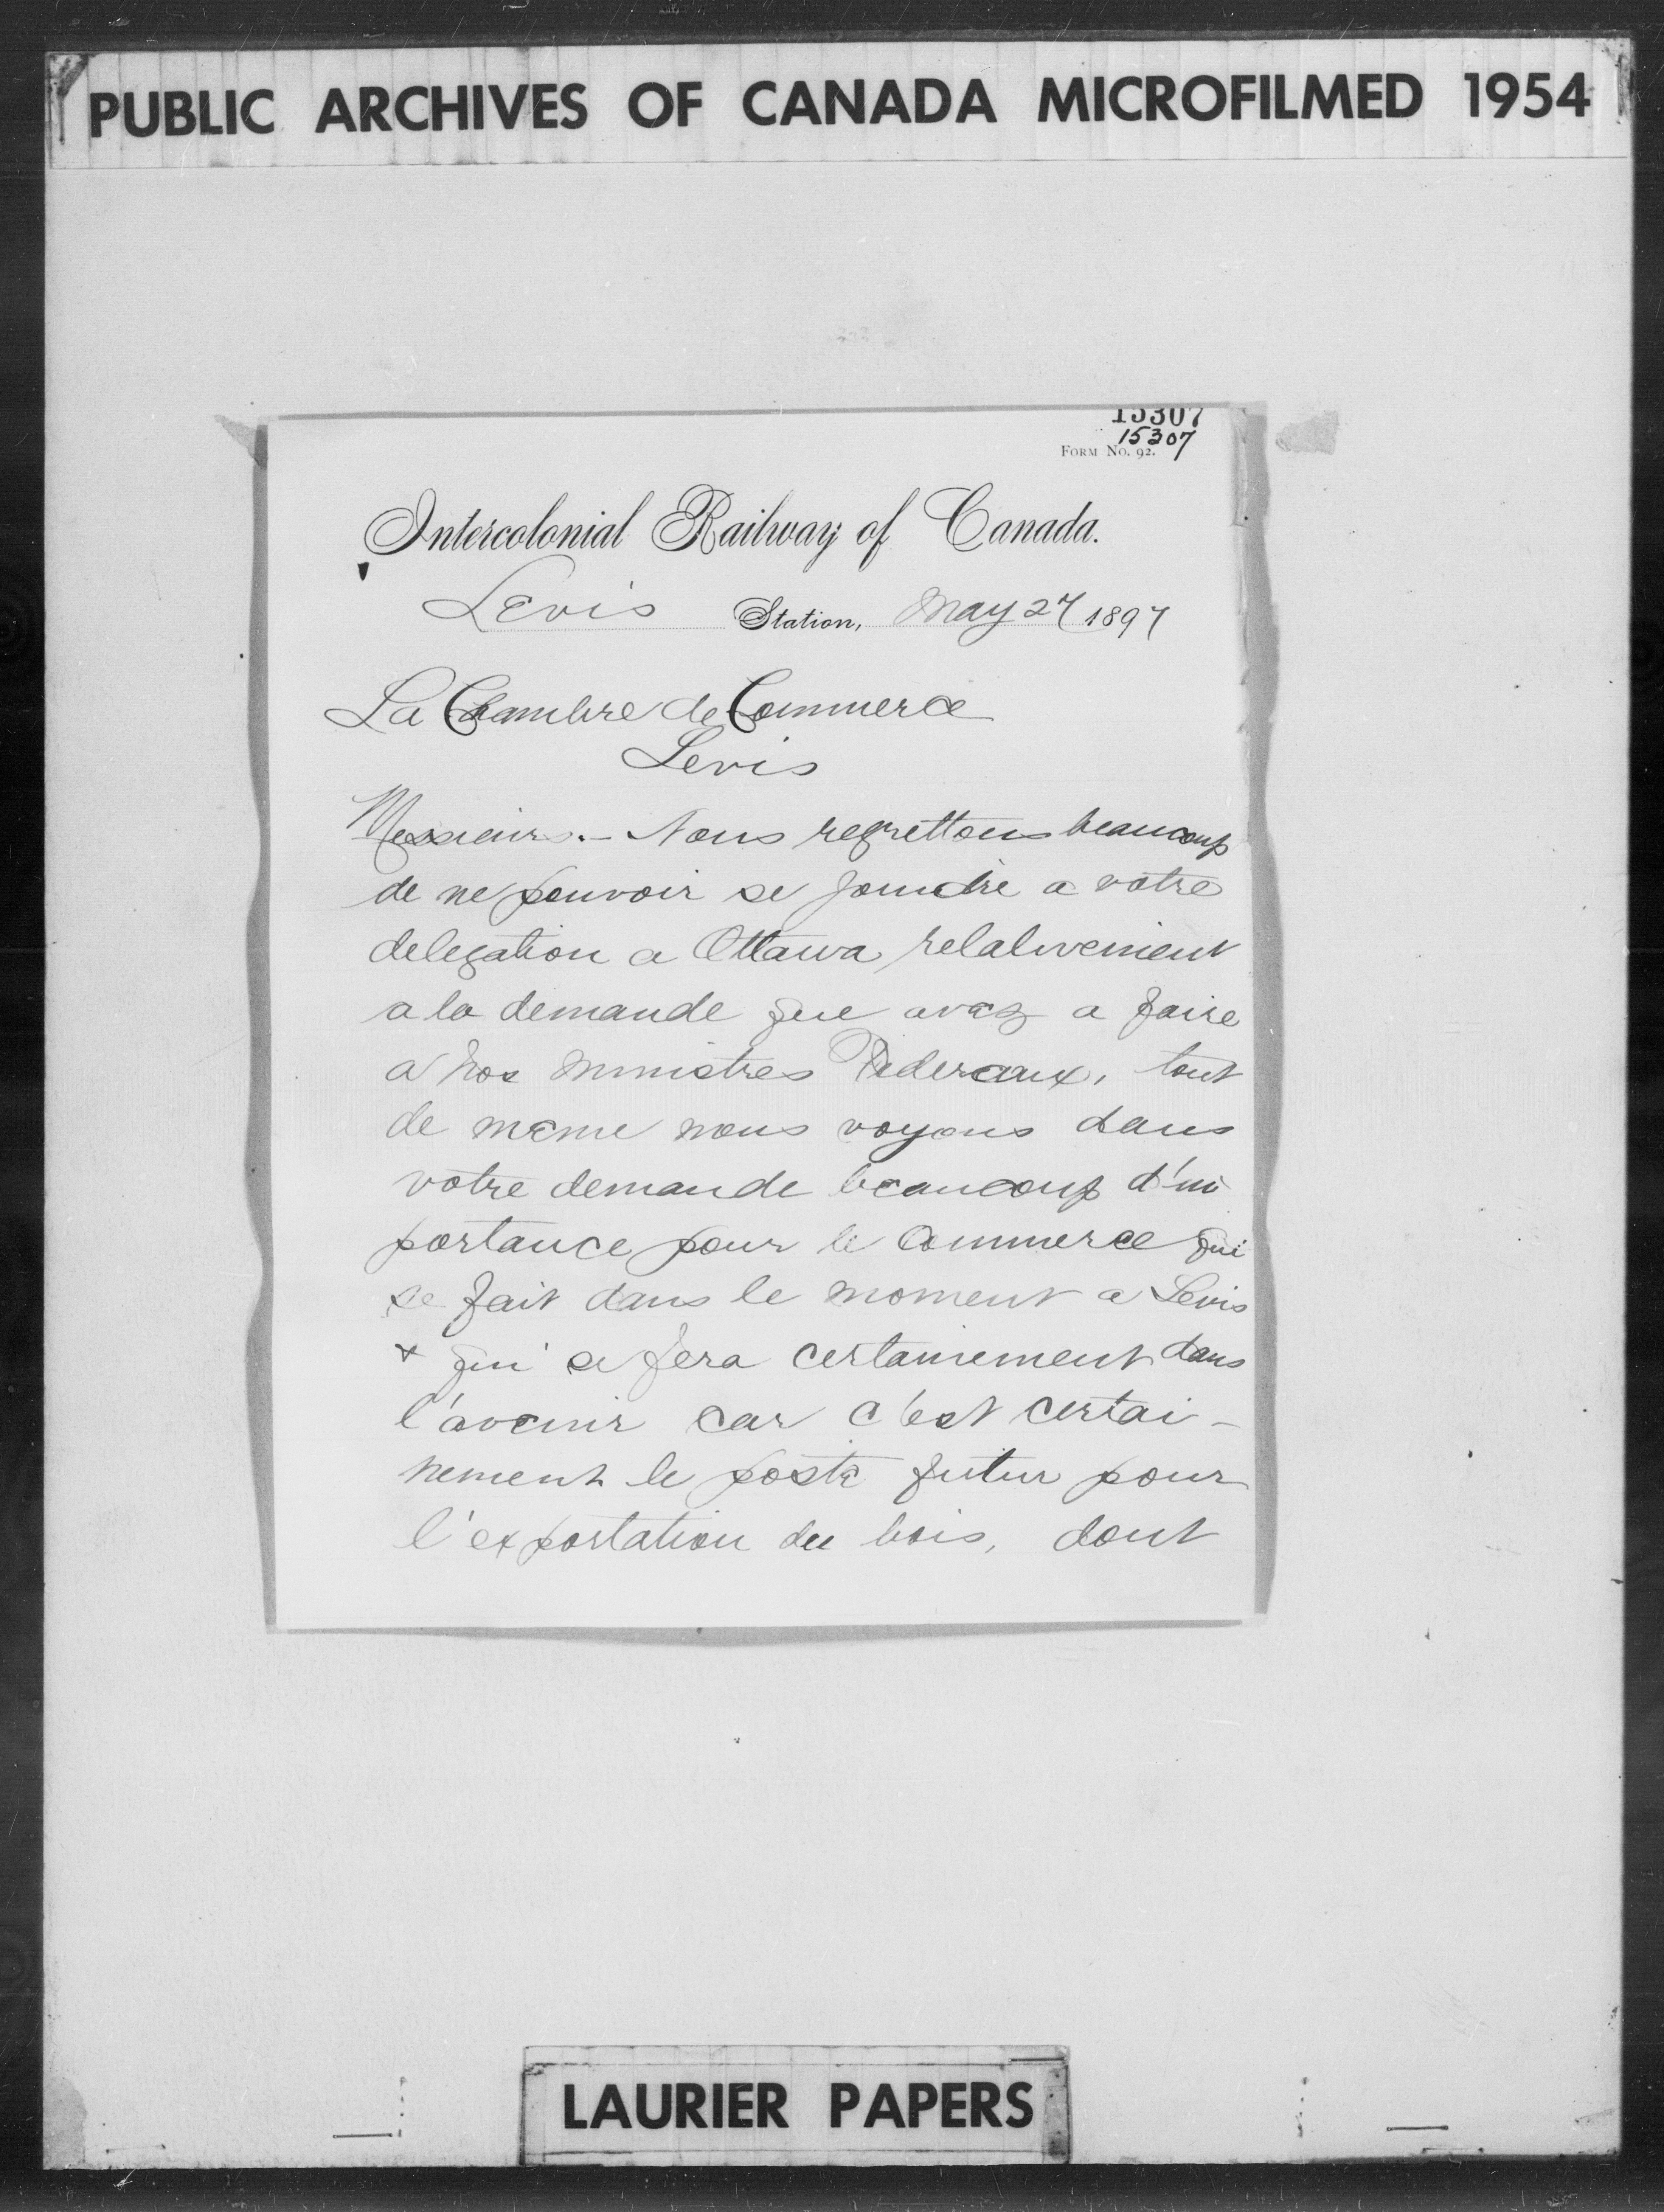 PUBLIC ARCHIVES OF CANADA MICROFILMED 1954
15307
15307
FORM No. 92.
Intercolonial Railway of Canada.
Levis Station, May 27 1897
La Chambre de Commerce
Levis
Messieurs.- Nous regrettons beaucoup
de ne pouvoir se joindre a votre
delegation a Ottawa relativement
a la demande que avez a faire
a nos ministres Federaux, tout
de meme nous voyons dans
votre demande beaucoup d'im
portance pour le Commerce qui
se fait dans le moment a Levis
+ qui se fera certainement dans
l'avenir car c'est certai-
nement le poste futur pour
l'exportation du bois, dont
LAURIER PAPERS